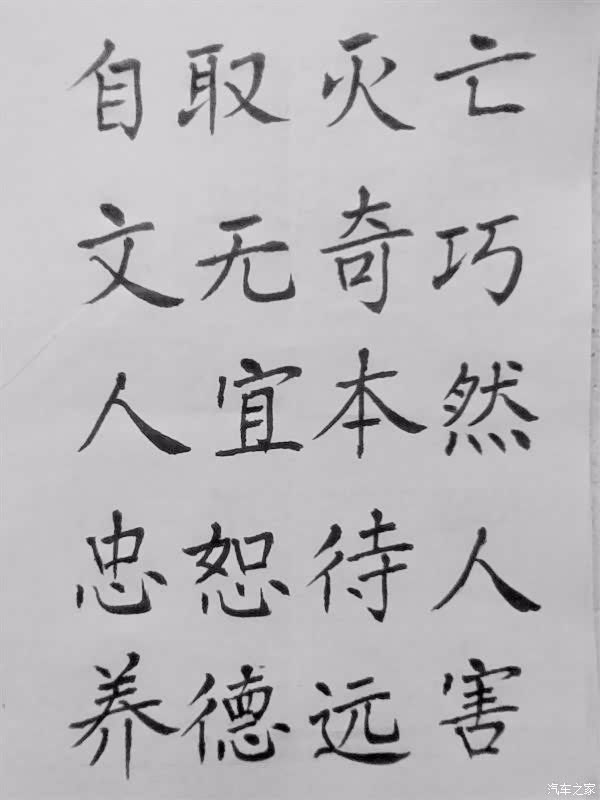 自取灭亡
文无奇巧
人宜本然
忠恕待人
养德远害
汽车之家